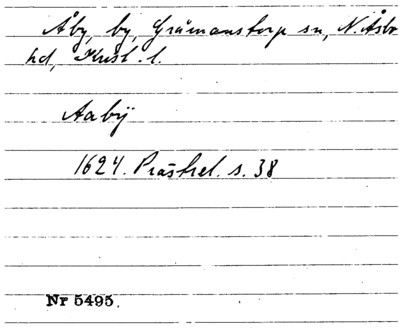 Åby, by, Gråmanstorp sn, N. Åsbo
hd, Krist. l.
Aabÿ
1624. Prästrel. s. 38
Nr 5495.